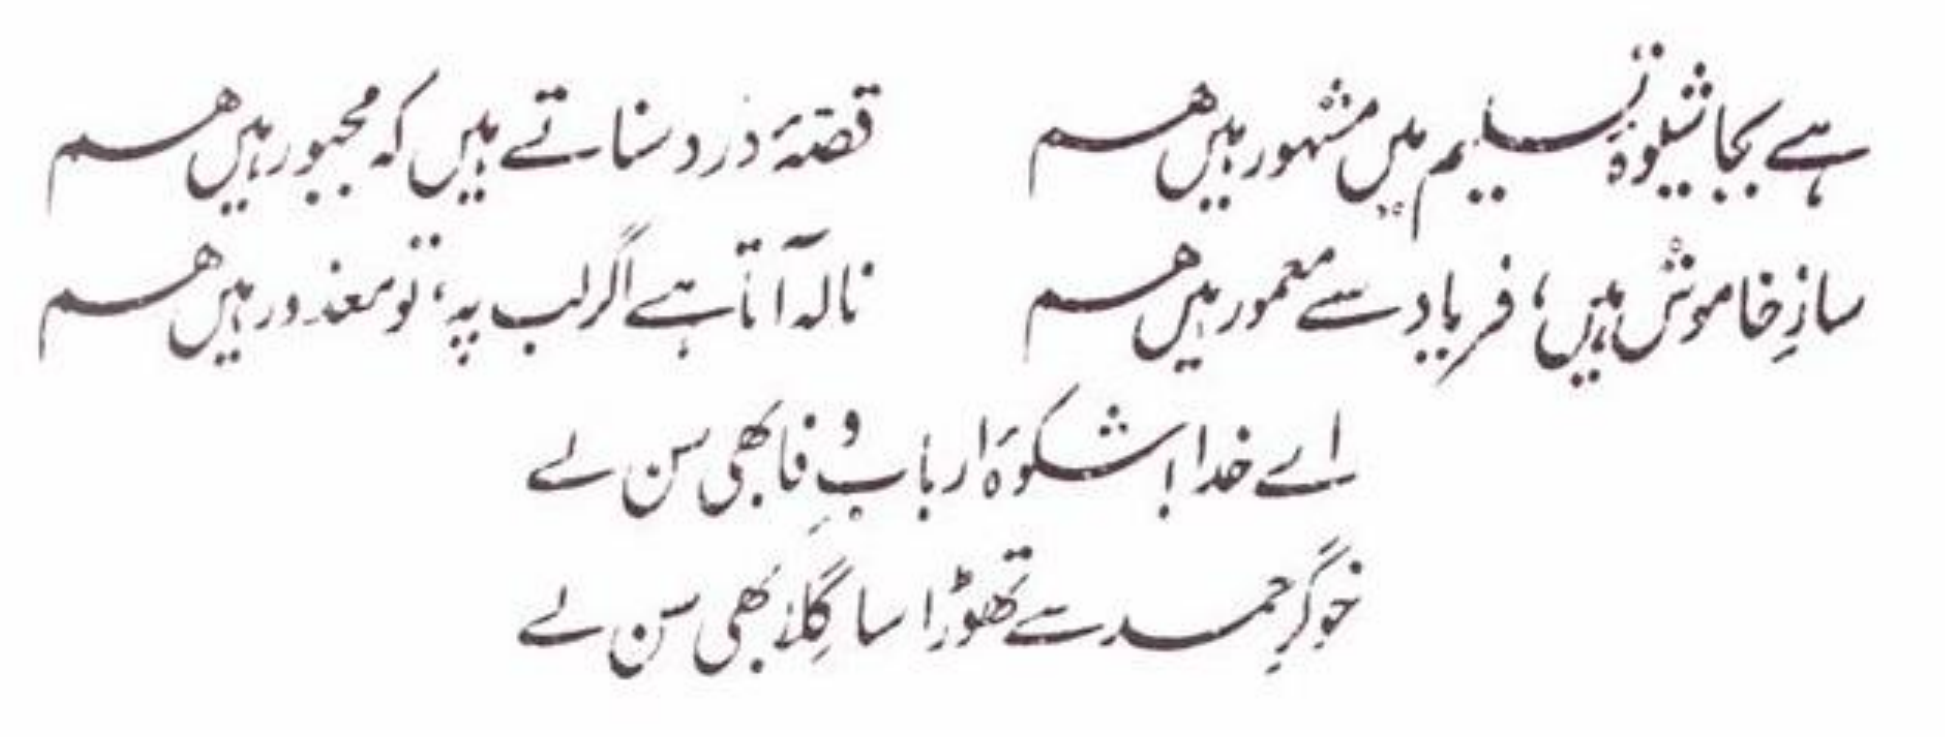 ہے بجا شیوۂ تسلیم میں مشہور ہیں ہم قصّۂ درد سناتے ہیں کہ مجبور ہیں ہم
سازِ خاموش ہیں، فریاد سے معمور ہیں ہم نالہ آتا ہے اگر لب پہ، تو معذور ہیں ہم
اے خدا! شکوۂ اربابِ وفا بھی سن لے
خوگرِ حمد سے تھوڑا سا گِلا بھی سن لے